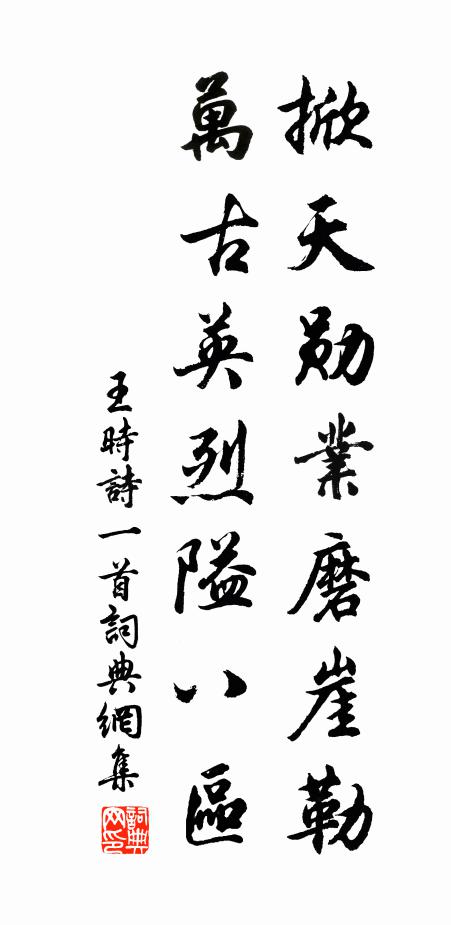 掀天勛業磨崖勒
萬古英烈隘八區
王時詩一首詞典網集
詞典网印